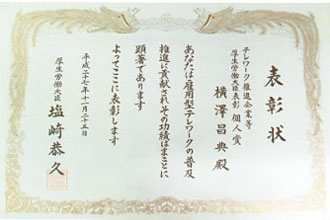 表彰状
テレワーク推進企業等
厚生労働大臣表彰 個人賞
横澤昌典殿
あなたは雇用型テレワークの普及
推進に貢献されその功績はまことに
顕著であります
よってここに表彰します
平成二十七年十一月二十五日
厚生労働大臣 塩崎恭久